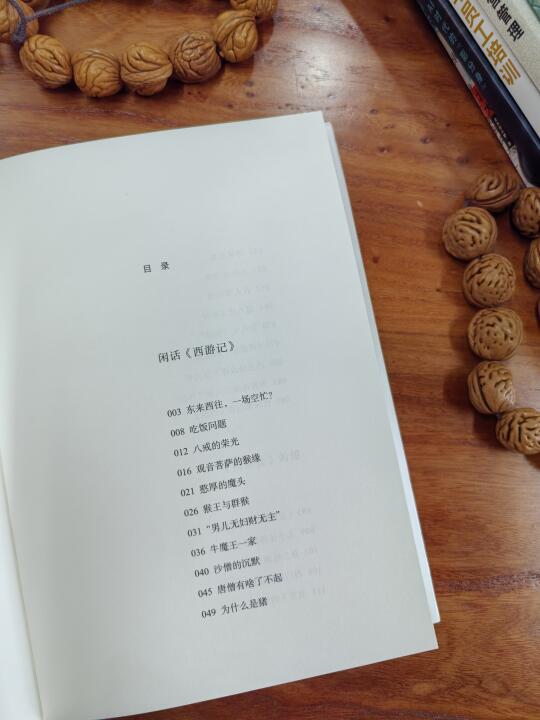 目 录
闲话《西游记》
003 东来西往，一场空忙？
008 吃饭问题
012 八戒的荣光
016 观音菩萨的猴缘
021 憨厚的魔头
026 猴王与群猴
031 “男儿无妇财无主”
036 牛魔王一家
040 沙僧的沉默
045 唐僧有啥了不起
049 为什么是猪
营管理
员工培训